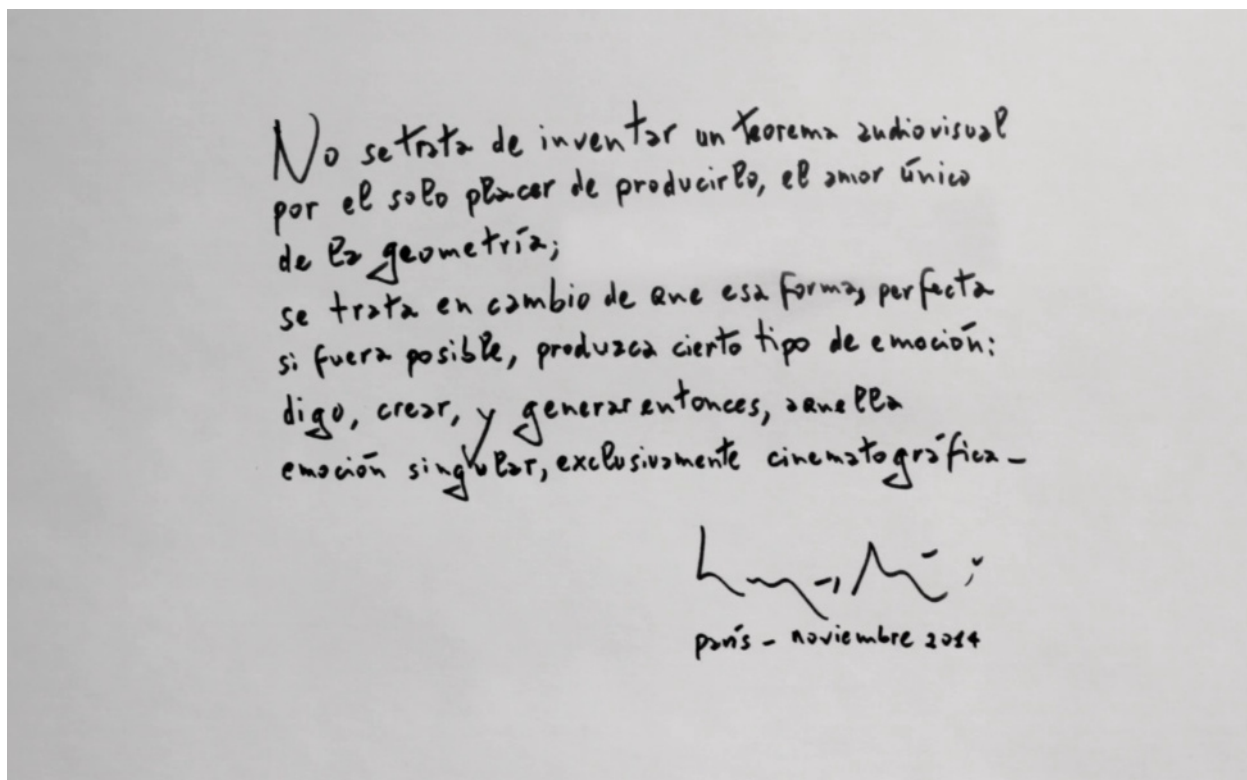 No se trata de inventar un teorema audiovisual
por el solo placer de producirlo, el amor único
de la geometría;
se trata en cambio de que esa forma, perfecta
si fuera posible, produzca cierto tipo de emoción:
digo, crear, y generar entonces, aquella
emoción singular, exclusivamente cinematográfica_
parís - noviembre 2014